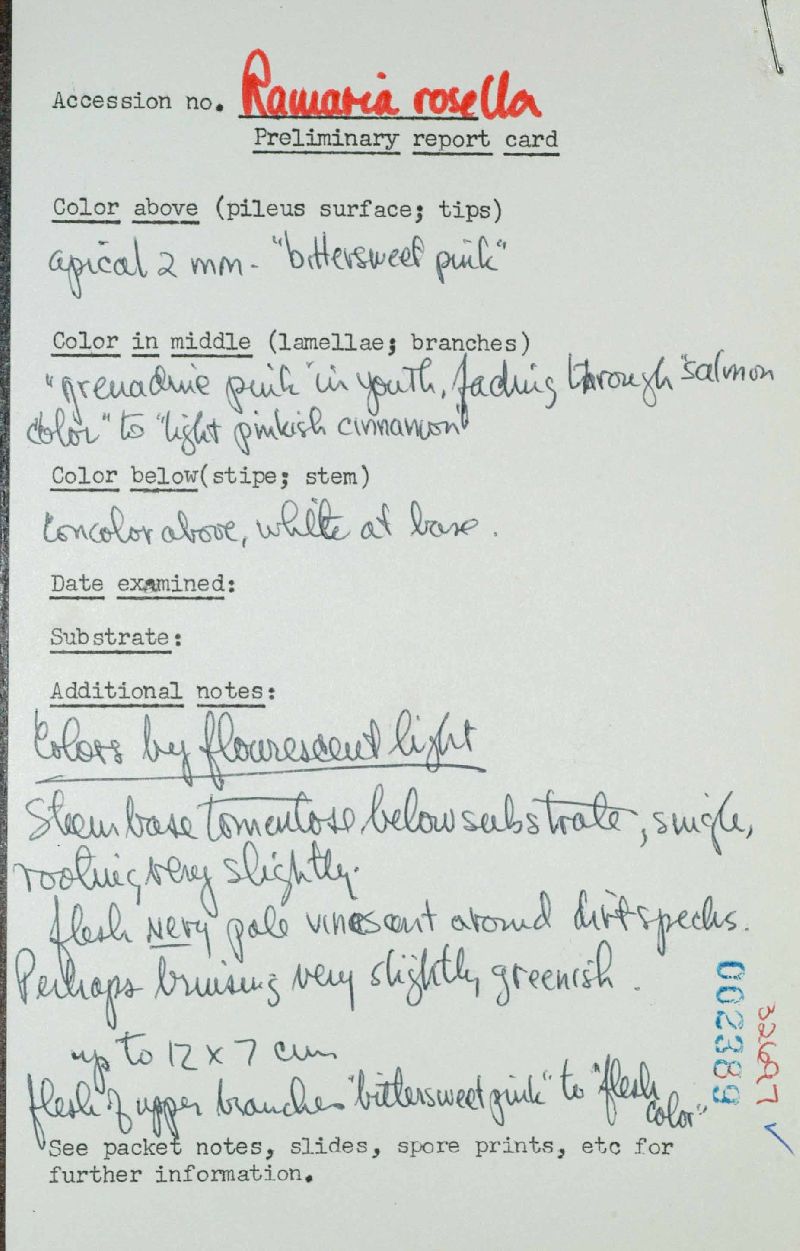 Accession no. Ramaria rosella
Preliminary report card
Color above (pileus surface; tips)
apical 2 mm - "bittersweet pink"
Color in middle (lamellae; branches)
"grenadine pink" in youth, fading through "salmon
color" to "light pinkish cinnamon"
Color below(stipe; stem)
Concolor above, white at base.
Date examined:
Substrate:
Additional notes:
Colors by flourescent light
Stem base tomentose below substrate, single,
rooting very slightly.
flesh very pale vinescent around dirt specks.
Perhaps bruising very slightly greenish.
up to 12 x 7 cm
flesh of upper branches "bittersweet pink" to "flesh
color"
See packet notes, slides, spore prints, etc for
further information.
002389
22697